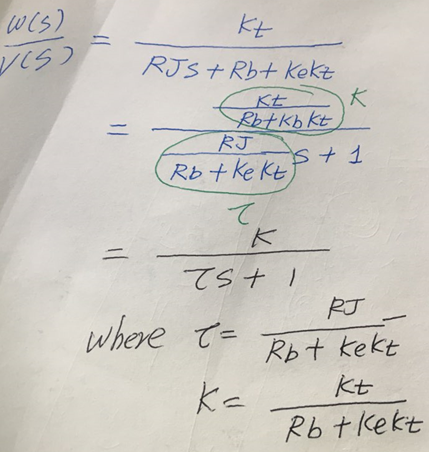 ω(s)/V(s) = Kt / (RJs + Rb + KeKt)
= (Kt / (Rb + KbKt)) / ((RJ / (Rb + KeKt)) s + 1)
K
τ
= K / (τs + 1)
where τ = RJ / (Rb + KeKt)
K = Kt / (Rb + KeKt)